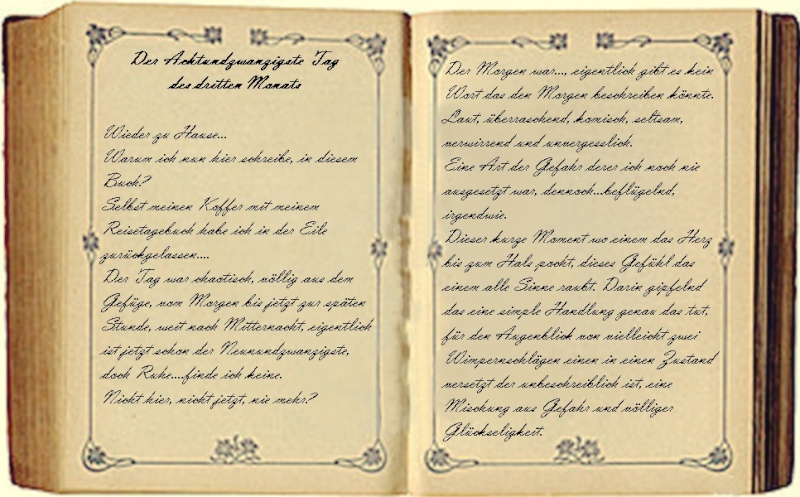 Der Achtundzwanzigste Tag
des dritten Monats
Wieder zu Hause...
Warum ich nun hier schreibe, in diesem
Buch?
Selbst meinen Koffer mit meinem
Reisetagebuch habe ich in der Eile
zurückgelassen....
Der Tag war chaotisch, völlig aus dem
Gefüge, vom Morgen bis jetzt zur späten
Stunde, weit nach Mitternacht, eigentlich
ist jetzt schon der Neunundzwanzigste,
doch Ruhe....finde ich keine.
Nicht hier, nicht jetzt, nie mehr?
Der Morgen war..., eigentlich gibt es kein
Wort das den Morgen beschreiben könnte.
Laut, überraschend, komisch, seltsam,
verwirrend und unvergesslich.
Eine Art der Gefahr derer ich noch nie
ausgesetzt war, dennoch...beflügelnd,
irgendwie.
Dieser kurze Moment wo einem das Herz
bis zum Hals pocht, dieses Gefühl das
einem alle Sinne raubt. Darin gipfelnd
das eine simple Handlung genau das tut,
für den Augenblick von vielleicht zwei
Wimpernschlägen einen in einen Zustand
versetzt der unbeschreiblich ist, eine
Mischung aus Gefahr und völliger
Glückseligkeit.